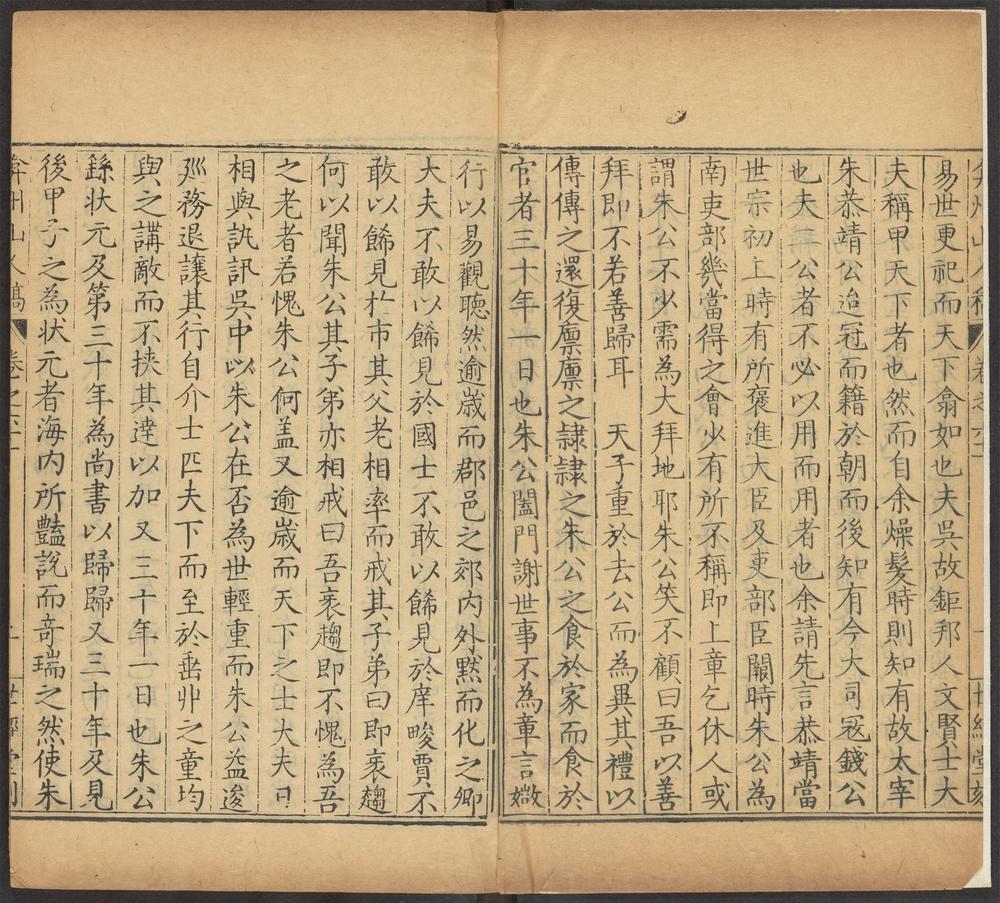 易世更祀而天下翕如也夫吳故鉅邦人文賢士大
夫稱甲天下者也然而自余燥髮時則知有故太宰
朱恭靖公迨冠而籍於朝而後知有今大司寇錢公
也夫二公者不必以用而用者也余請先言恭靖當
世宗初上時有所褒進大臣及吏部臣闕時朱公為
南吏部幾當得之會少有所不稱即上章乞休人或
謂朱公不少需為大拜地耶朱公笑不顧曰吾以善
拜即不若善歸耳 天子重於去公而為異其禮以
傳傳之還復廪廪之隷隷之朱公之食於家而食於
官者三十年一日也朱公闔門謝世事不為章言媺
行以易觀聽然逾歲而郡邑之郊內外黙而化之卿
大夫不敢以餙見於國士不敢以餙見於庠畯賈不
敢以餙見於市其父老相率而戒其子弟曰即衺趨
何以聞朱公其子弟亦相戒曰吾衺趨即不愧為吾
之老者若愧朱公何盖又逾歲而天下之士大夫日
相與訊訊吳中以朱公在否為世輕重而朱公益逡
廵務退讓其行自介士匹夫下而至於垂丱之童均
與之講敵而不挾其達以加又三十年一日也朱公
繇狀元及第三十年為尚書以歸歸又三十年及見
後甲子之為狀元者海內所豔說而奇瑞之然使朱
弇州山人稿 卷之六十 世經堂刻